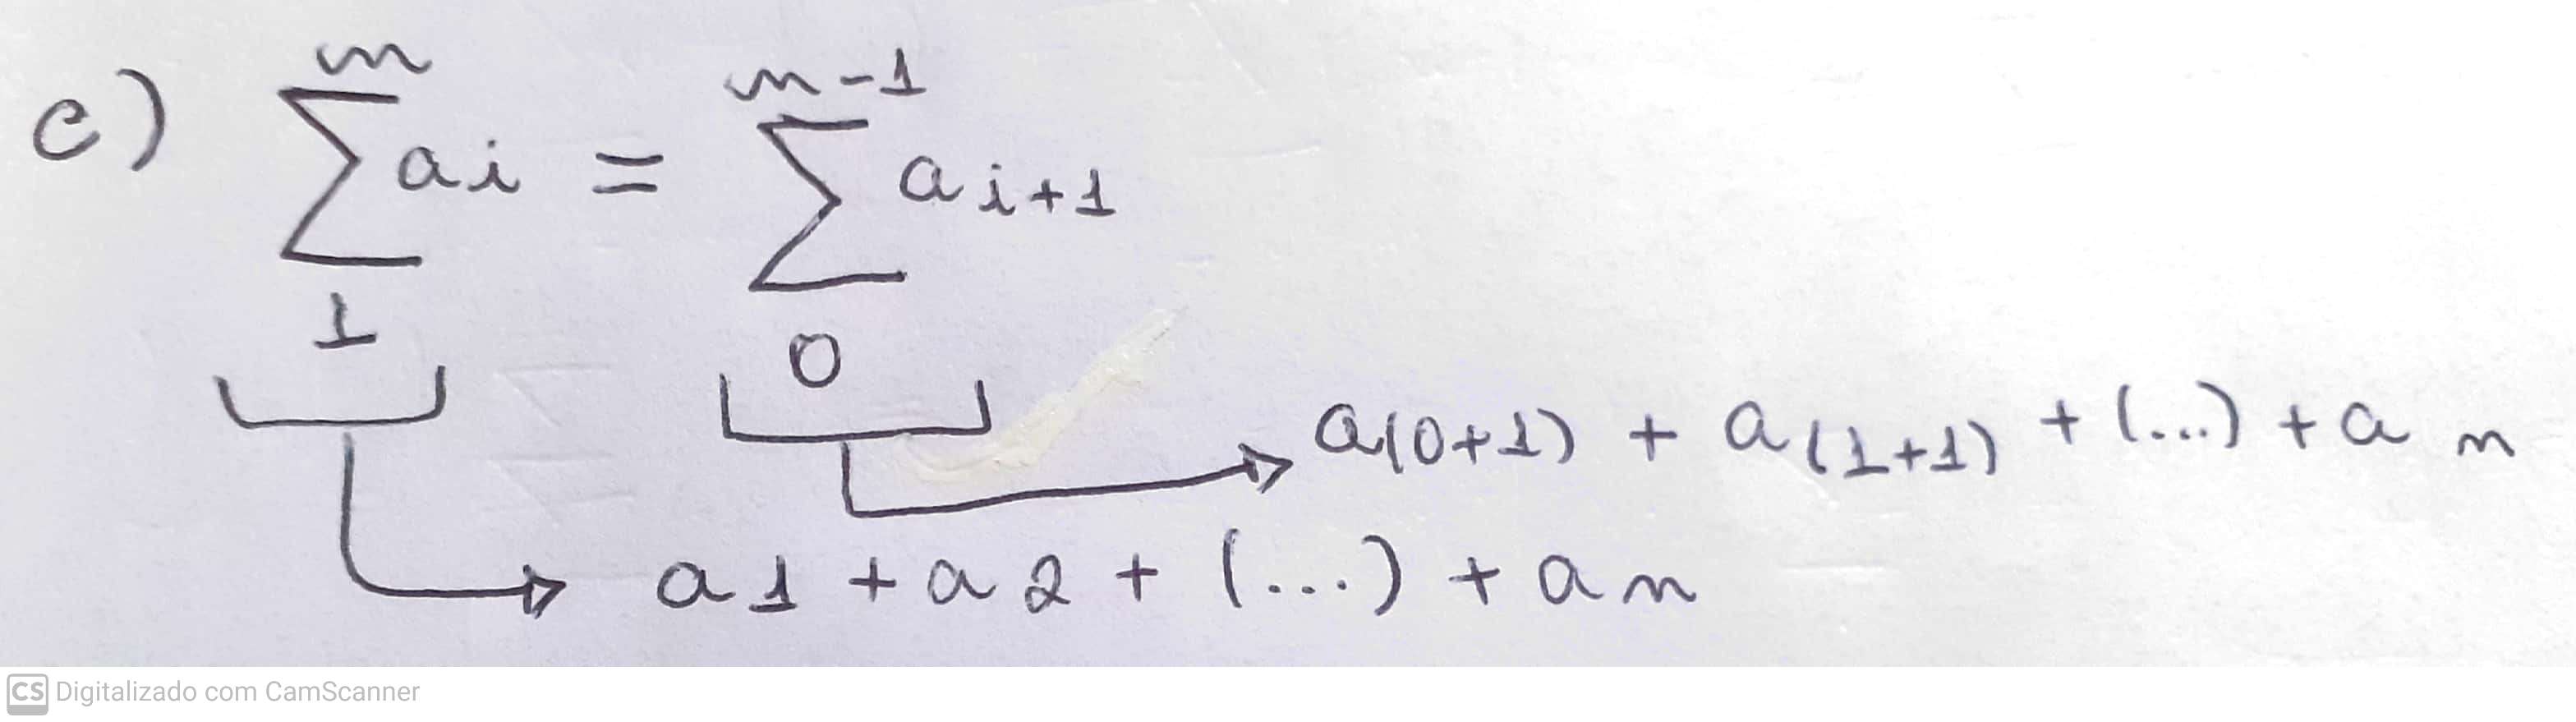 c) n∑1 ai = n-1∑0 ai+1
a(0+1) + a(1+1) + (...) + an
a1 + a2 + (...) + an
CS Digitalizado com CamScanner